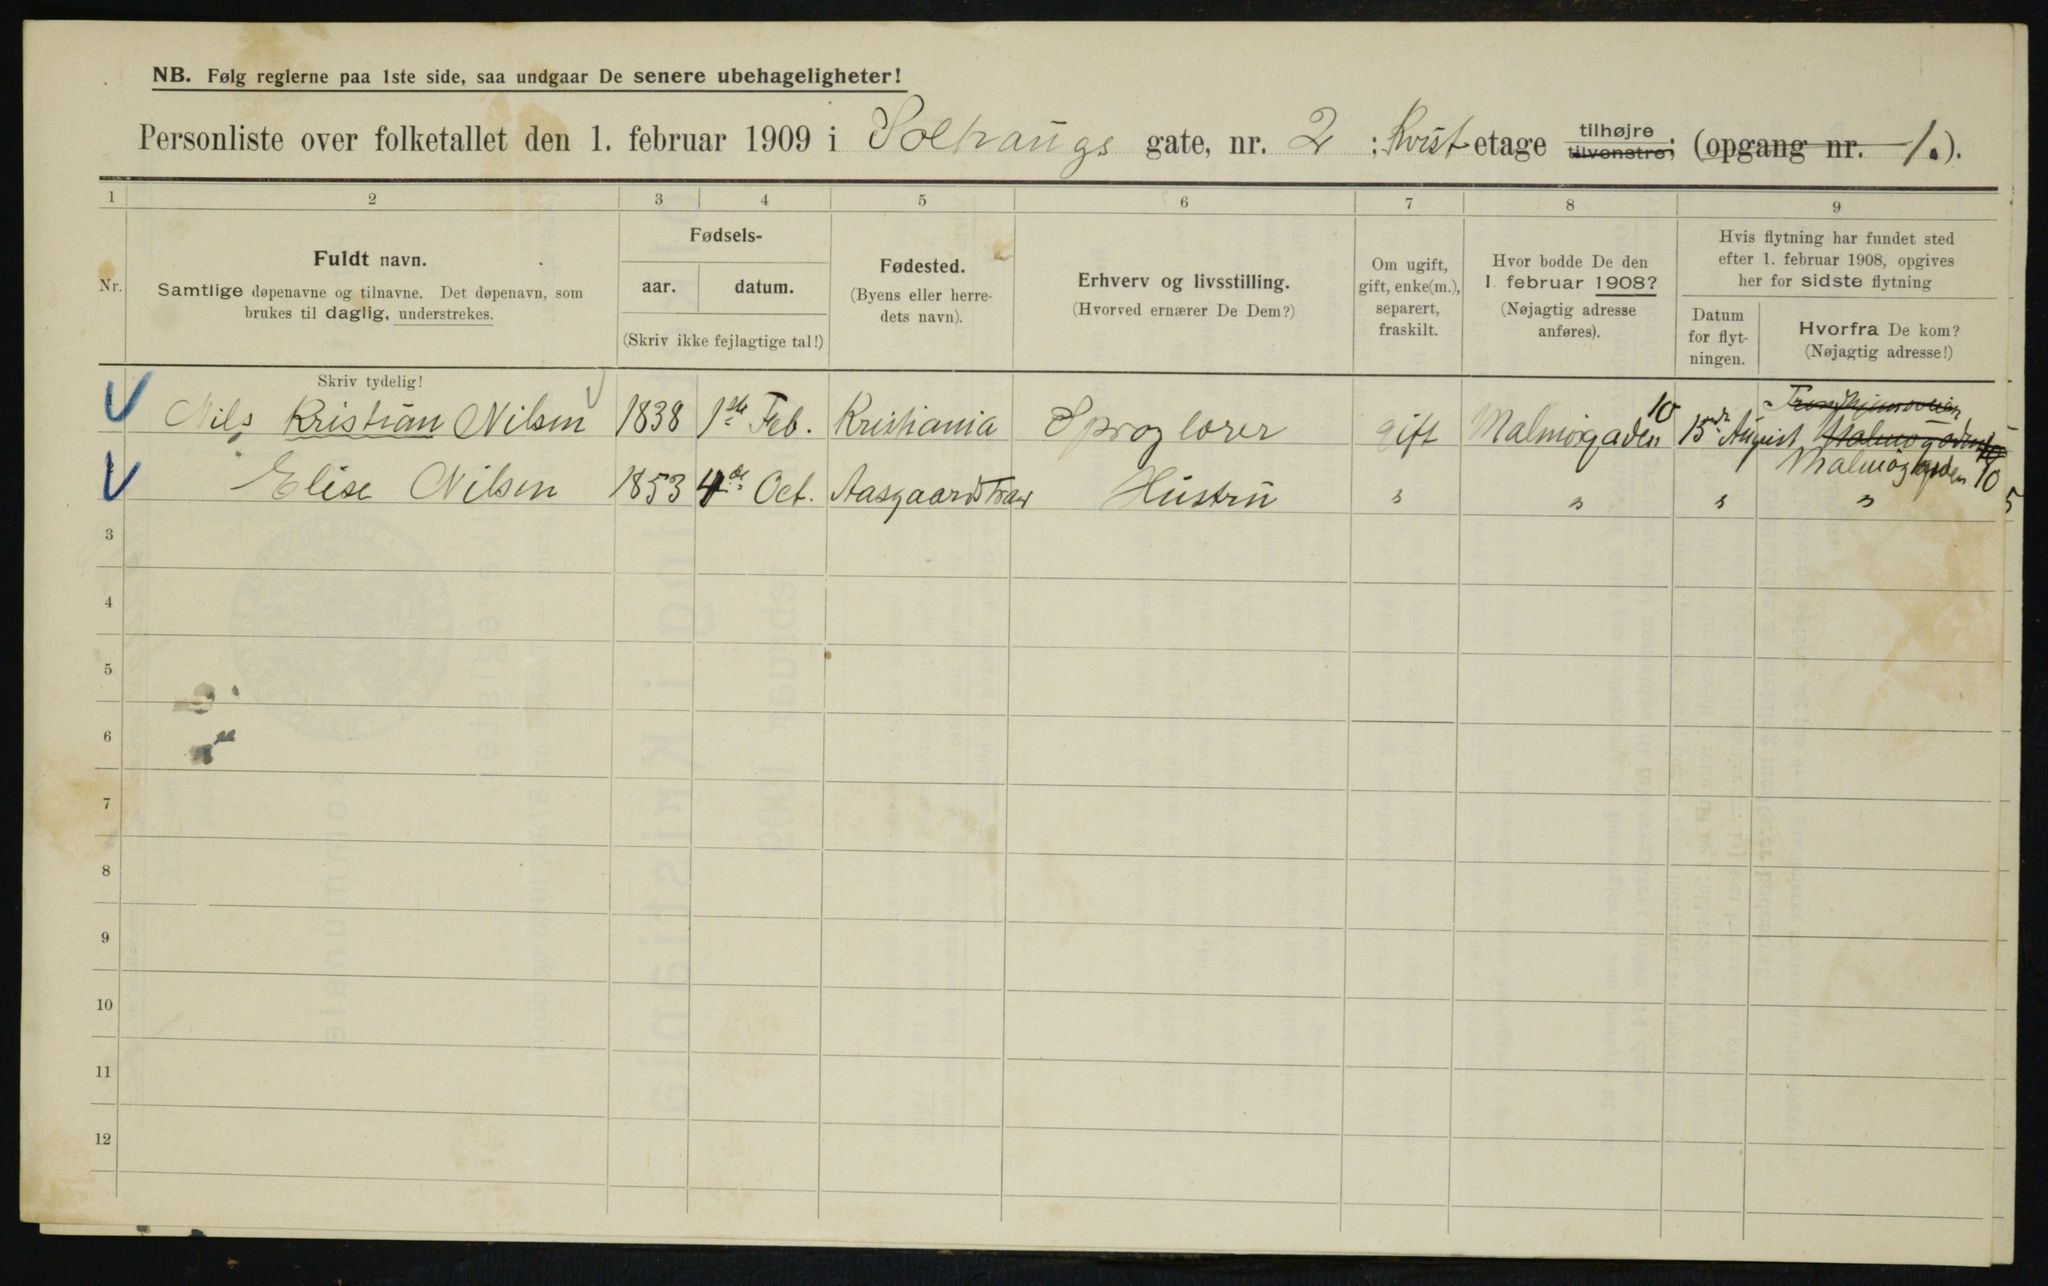 NB. Følg reglerne paa 1ste side, saa undgaar De senere ubehageligheter!
Personliste over folketallet den 1. februar 1909 i Soltraugs gate, nr. 2 ; Kvist etage tilhøjre tilvenstre; (opgang nr. 1.).
1 2 3 4 5 6 7 8 9
Nr.
Fuldt navn.
Samtlige døpenavne og tilnavne. Det døpenavn, som
brukes til daglig, understrekes.
Skriv tydelig!
Fødsels-
aar. datum.
(Skriv ikke fejlagtige tal!)
Fødested.
(Byens eller herre-
dets navn).
Erhverv og livsstilling.
(Hvorved ernærer De Dem?)
Om ugift,
gift, enke(m.),
separert,
fraskilt.
Hvor bodde De den
1. februar 1908?
(Nøjagtig adresse
anføres).
Hvis flytning har fundet sted
efter 1. februar 1908, opgives
her for sidste flytning
Datum
for flyt-
ningen.
Hvorfra De kom?
(Nøjagtig adresse!)
Nils Kristian Nilsen 1838 1ste Feb. Kristiania Sproglærer gift Malmøgaden 10 15de August Trondhjemsveien Malmøgaden 10
Malmøgaden 10
Elise Nilsen 1853 4de Oct. Aasgaardstran Hustru " " " " 5
3
4
5
6
7
8
9
10
11
12